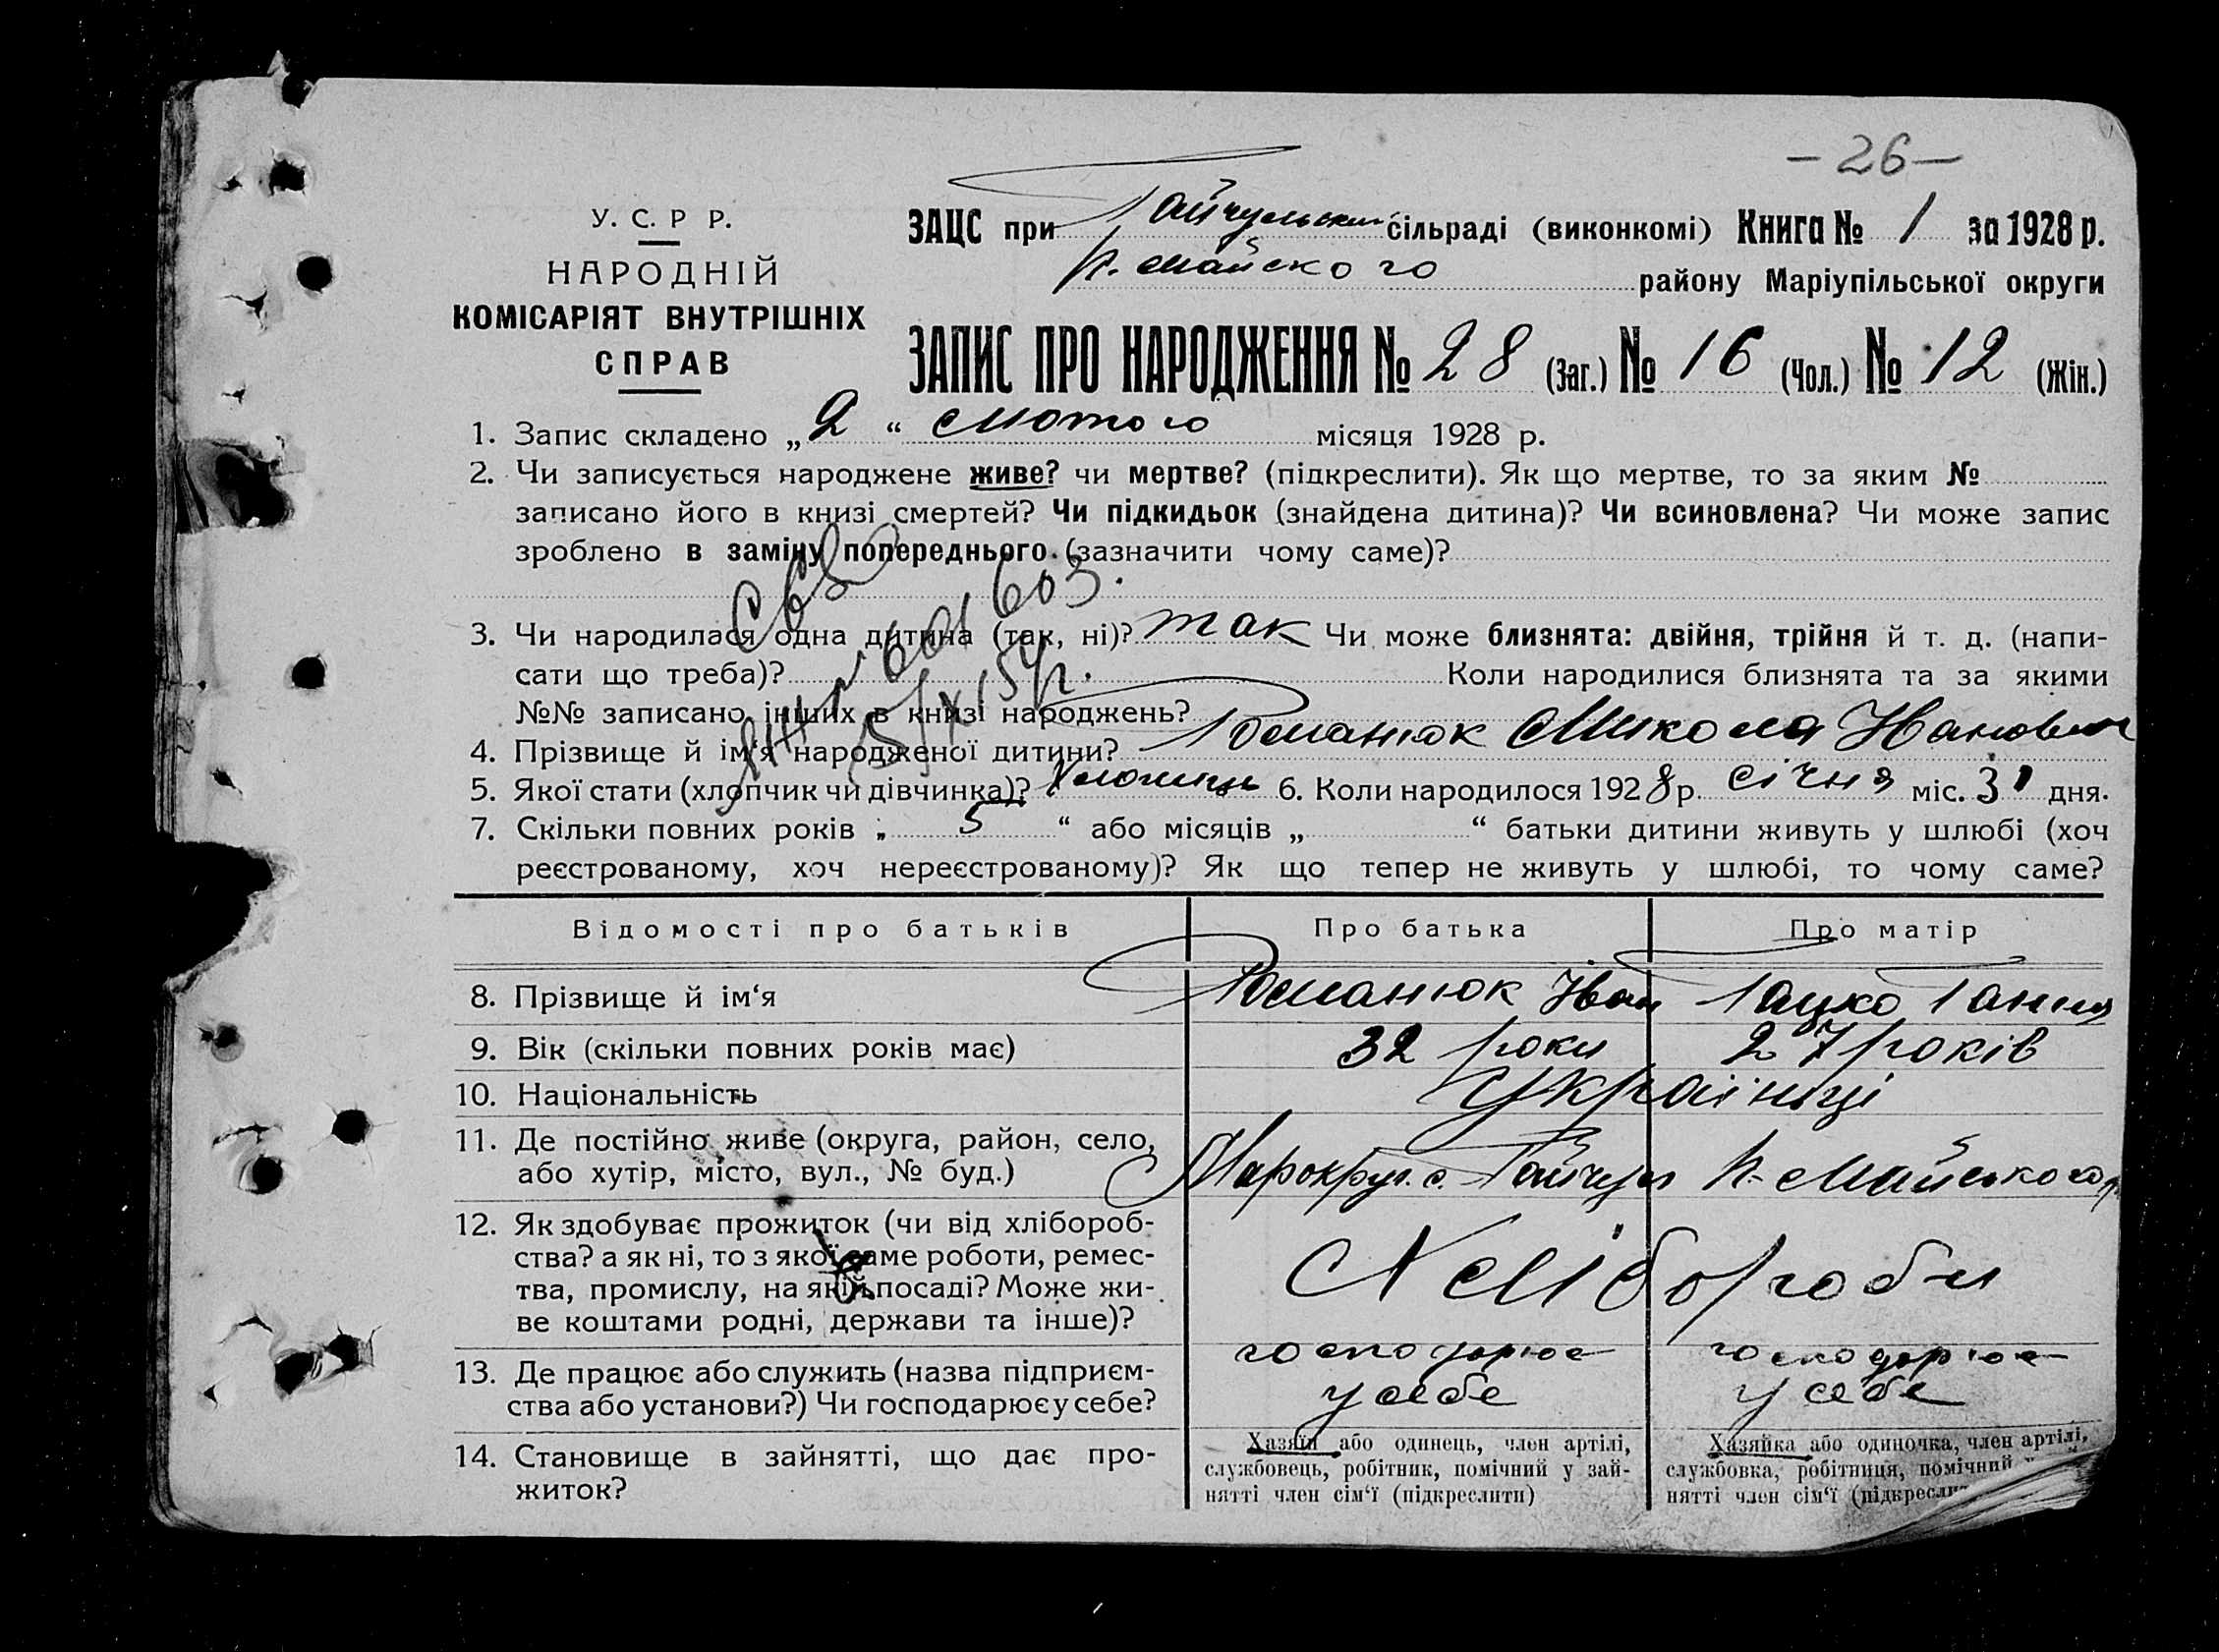 – 26 –
У. С. Р Р.
НАРОДНІЙ
КОМІСАРІЯТ ВНУТРІШНІХ
СПРАВ
ЗАЦС при Гайчульський сільраді (виконкомі) Книга № 1 за 1928 р.
Н. Майского району Маріупільської округи
ЗАПИС ПРО НАРОДЖЕННЯ № 28 (Заг.) № 16 (Чол.) № 12 (Жін.)
1. Запис складено „ 2 “ лютого місяця 1928 р.
2. Чи записується народжене живе? чи мертве? (підкреслити). Як що мертве, то за яким №
записано його в книзі смертей? Чи підкидьок (знайдена дитина)? Чи всиновлена? Чи може запис
зроблено в заміну попереднього (зазначити чому саме)?
3. Чи народилася одна дитина (так, ні)? так Чи може близнята: двійня, трійня й т. д. (напи-
сати що треба)? Коли народилися близнята та за якими
№№ записано інших в книзі народжень?
4. Прізвище й ім‘я народженої дитини? Романюк Микола Иванович
5. Якої стати (хлопчик чи дівчинка)? Хлопець 6. Коли народилося 1928 р. січня міс. 31 дня.
7. Скільки повних років „ 5 “ або місяців „ “ батьки дитини живуть у шлюбі (хоч
реєстрованому, хоч нереєстрованому)? Як що тепер не живуть у шлюбі, то чому саме?
Відомості про батьків Про батька Про матір
8. Прізвище й ім‘я Романюк Іван Гацко Ганна
9. Вік (скільки повних років має) 32 роки 27 років
10. Національність Українці
11. Де постійно живе (округа, район, село,
або хутір, місто, вул., № буд.) Марокруг. с. Гайчул Н-Майського р
12. Як здобуває прожиток (чи від хлібороб-
ства? а як ні, то з якої саме роботи, ремес-
тва, промислу, на якій посаді? Може жи-
ве коштами родні, держави та інше)? Хлібороби
13. Де працює або служить (назва підприєм-
ства або установи?) Чи господарює у себе? господарює у себе господарює у себе
14. Становище в зайнятті, що дає про-
житок?
Хазяїн або одинець, член артілі,
службовець, робітник, помічний у зай-
нятті член сім‘ї (підкреслити)
Хазяйка або одиночка, член артілі,
службовка, робітниця, помічний
нятті член сім‘ї
601603